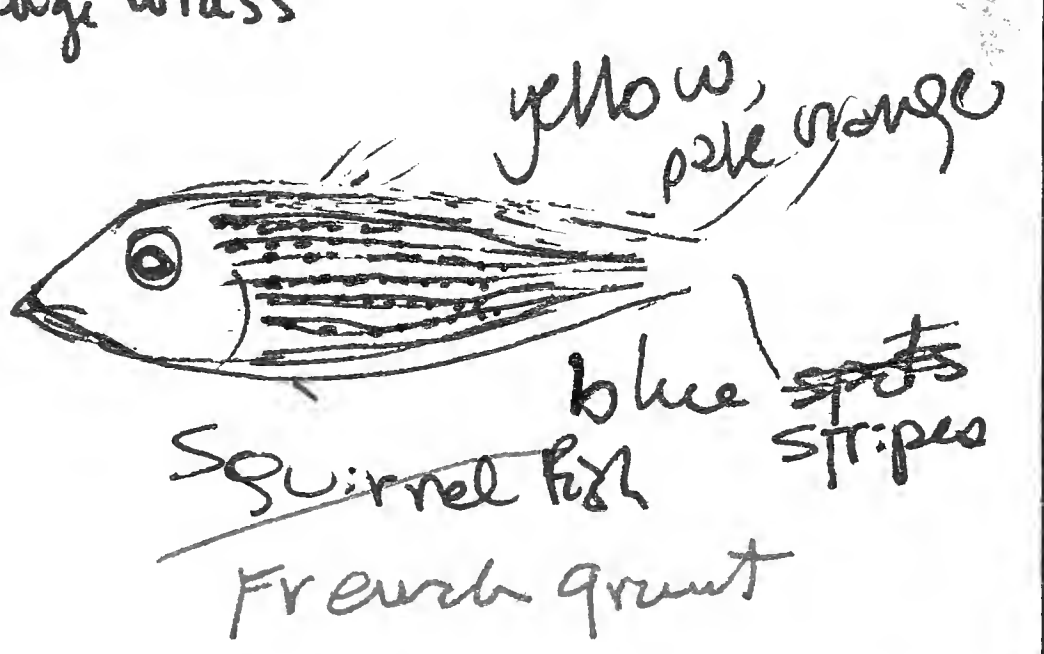 wrass
yellow,
pale orange
blue spots
stripes
Squirrel fish
French grunt